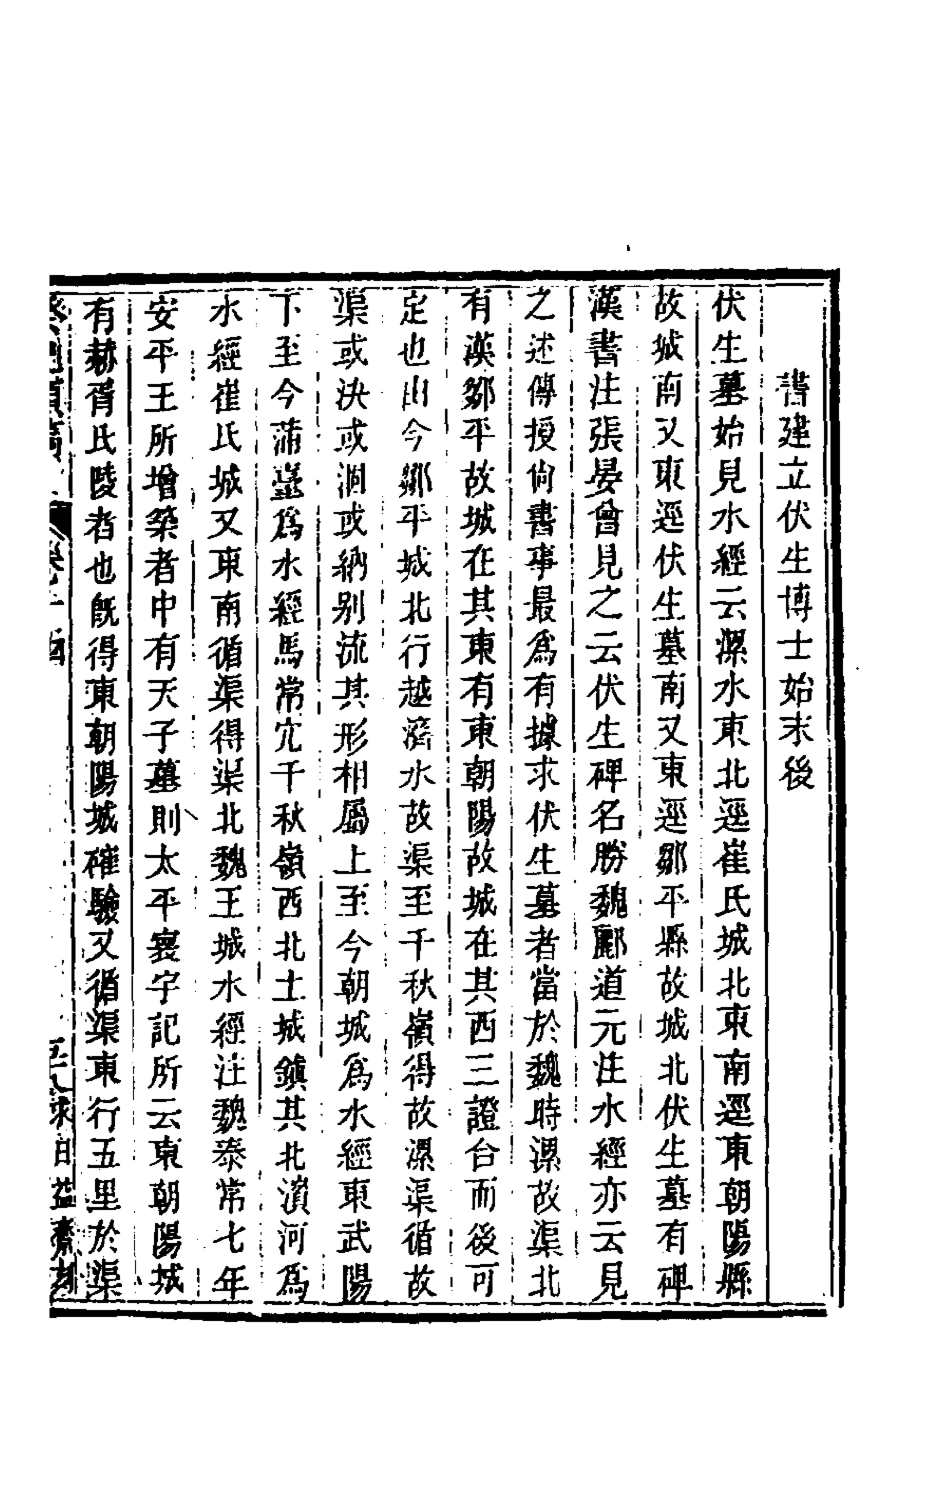 書建立伏生博士始末後
伏生墓始見水經云漯水東北逕崔氏城北東南逕東朝陽縣
故城南又東逕伏生墓南又東逕鄒平縣故城北伏生墓有碑
漢書注張晏曾見之云伏生碑名勝魏酈道元注水經亦云見
之述傳授尙書事最爲有據求伏生墓者當於魏時漯故渠北
有漢鄒平故城在其東有東朝陽故城在其西三證合而後可
定也由今鄒平城北行越濟水故渠至千秋嶺得故漯渠循故
渠或決或涸或納别流其形相屬上至今朝城爲水經東武陽
下至今蒲臺爲水經馬常坈千秋嶺西北土城鎮其北濱河爲
水經崔氏城又東南循渠得渠北魏王城水經注魏泰常七年
安平王所增築者中有天子墓則太平寰宇記所云東朝陽城
有赫胥氏陵者也旣得東朝陽城確驗又循渠東行五里於渠
卷十四